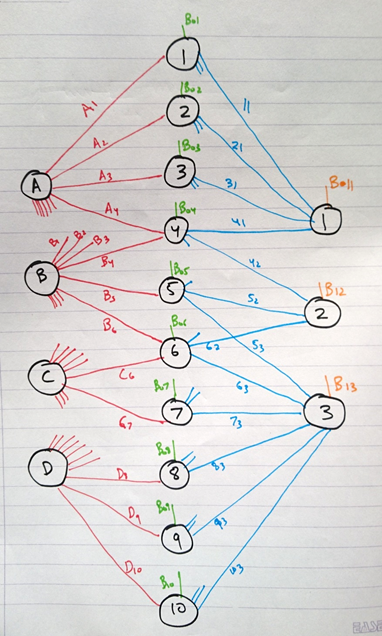 B01
1
A1
11
B02
2
A2
21
B03
3
A3
31
A
B011
1
A4
B04
4
41
B1 B2 B3
B4
42
B
B05
5
B5
52
B12
2
B6
B06
6
62
53
C
C6
63
B13
3
B07
7
G7
73
D
B08
8
D8
83
B09
9
D9
93
D10
B10
10
103